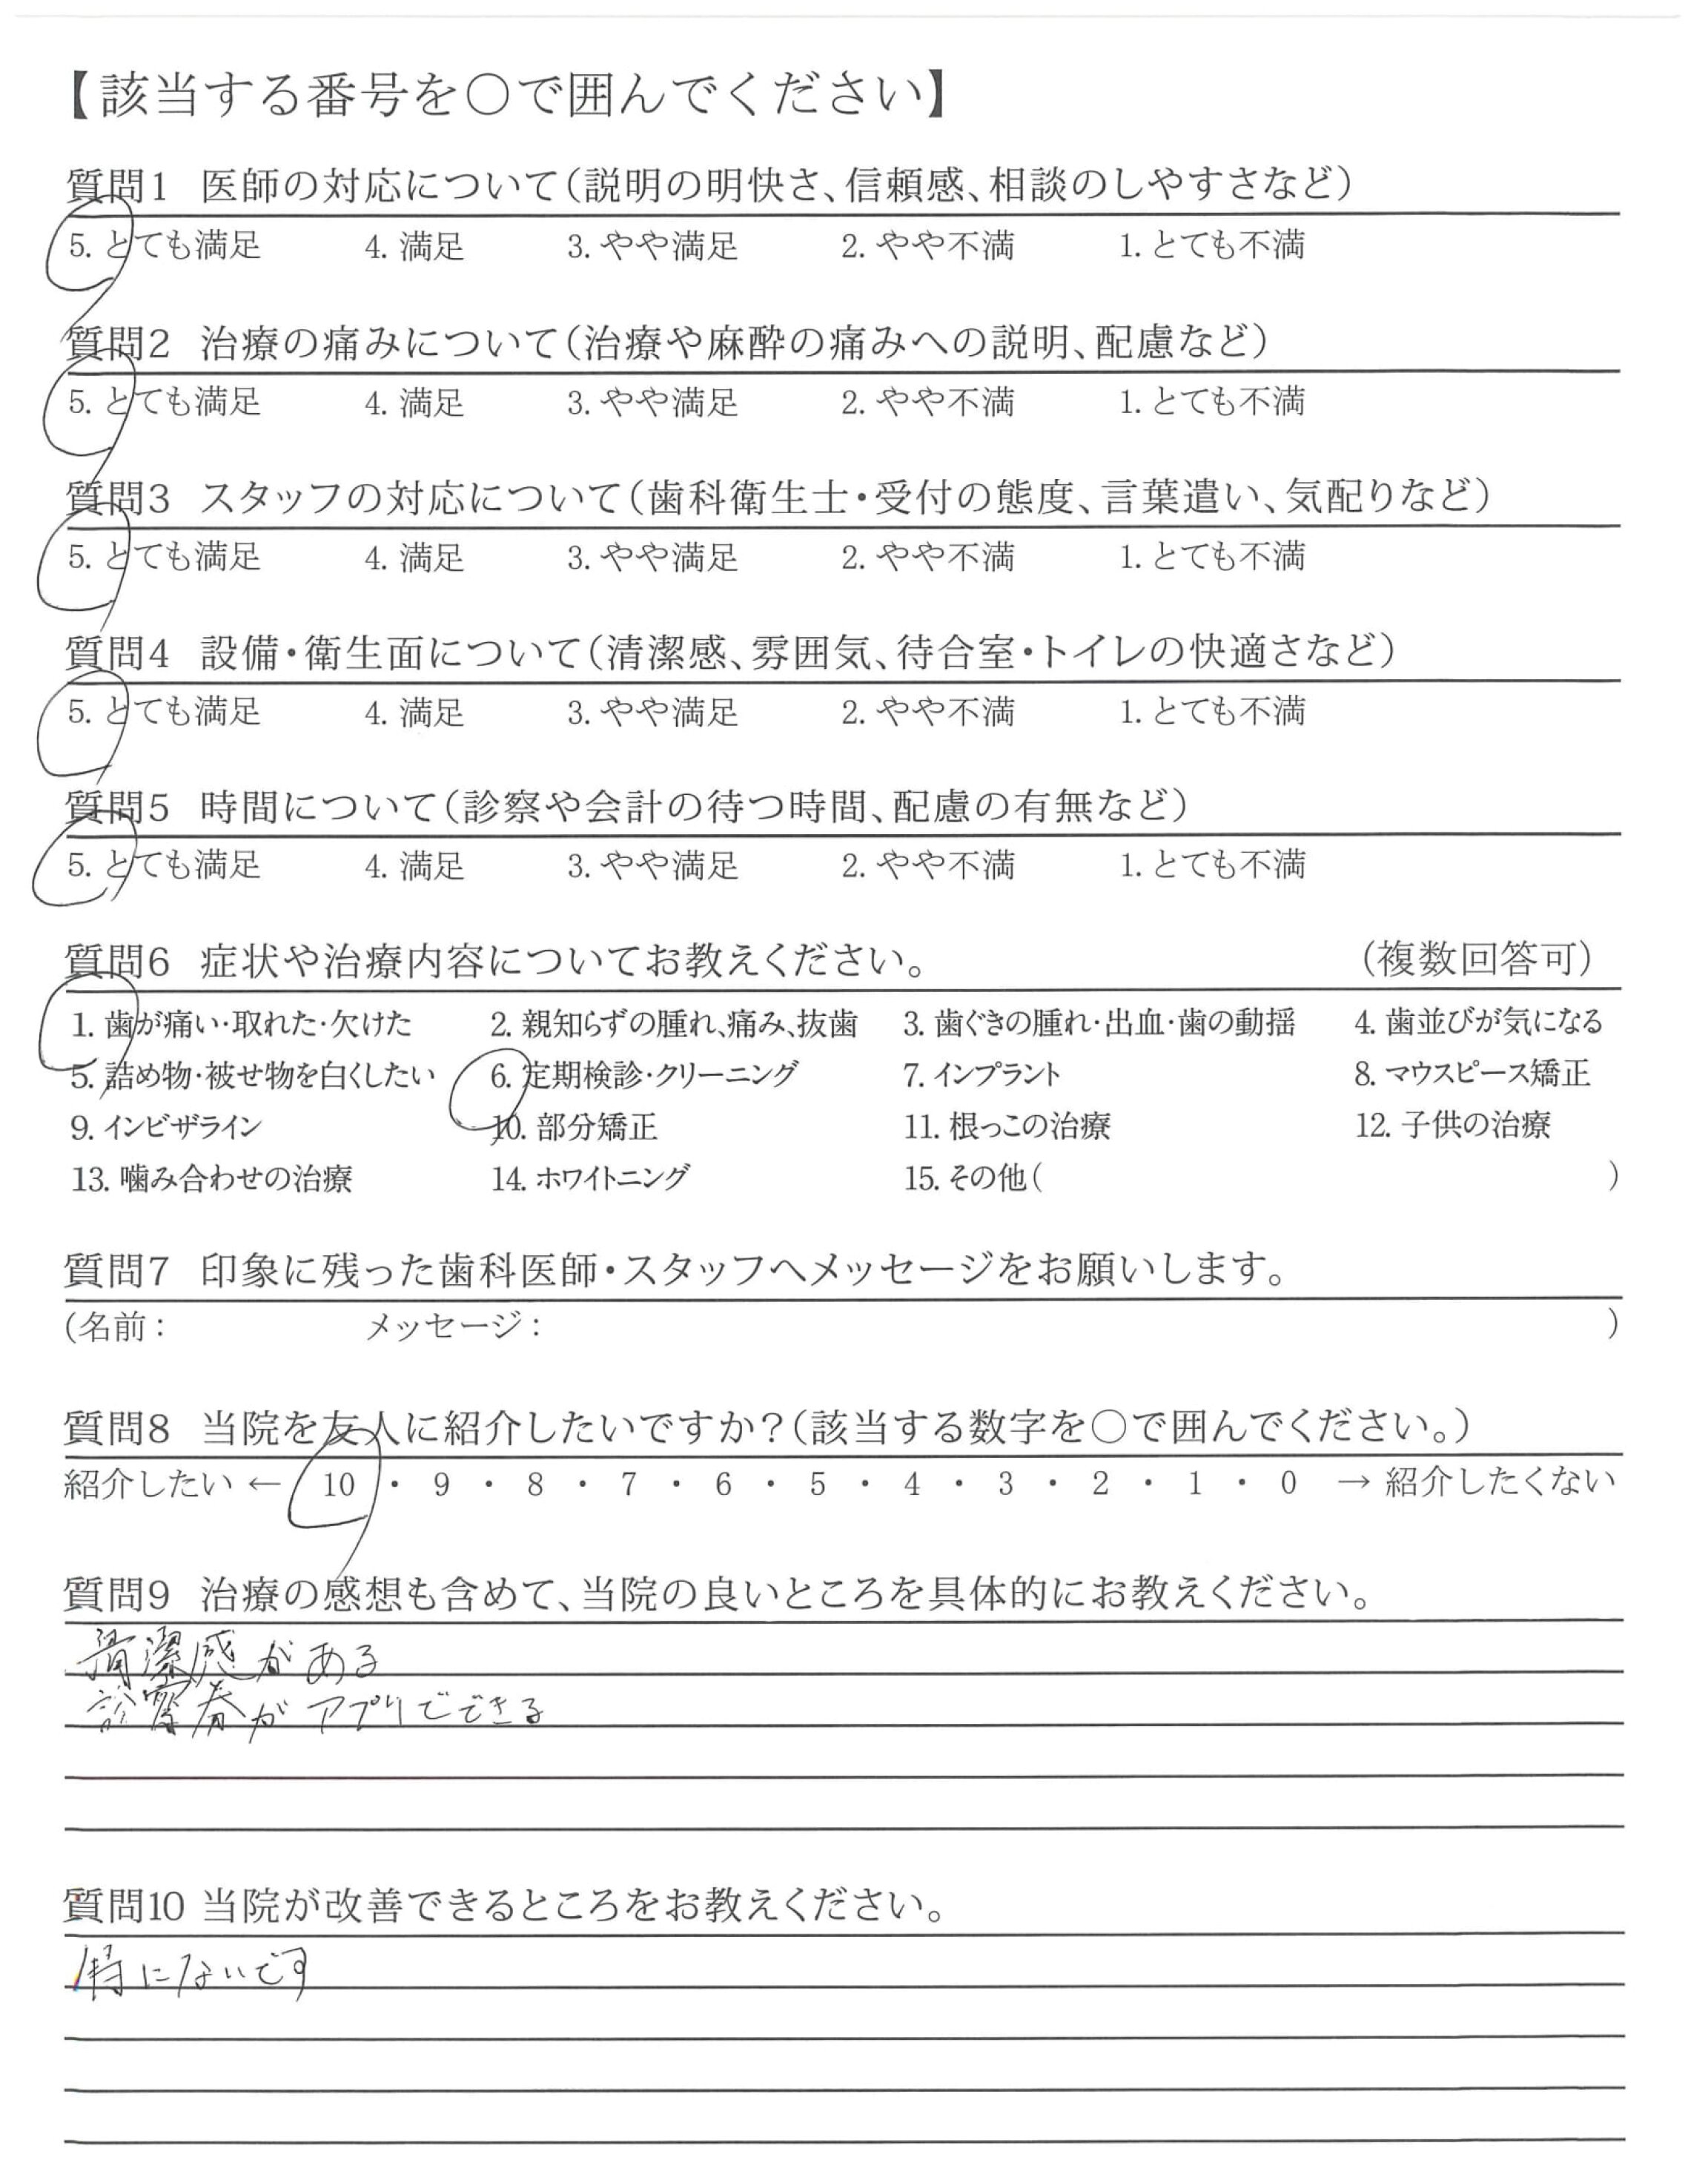 【該当する番号を○で囲んでください】
質問1 医師の対応について(説明の明快さ、信頼感、相談のしやすさなど)
5. とても満足 4. 満足 3. やや満足 2. やや不満 1. とても不満
質問2 治療の痛みについて(治療や麻酔の痛みへの説明、配慮など)
5. とても満足 4. 満足 3. やや満足 2. やや不満 1. とても不満
質問3 スタッフの対応について(歯科衛生士・受付の態度、言葉遣い、気配りなど)
5. とても満足 4. 満足 3. やや満足 2. やや不満 1. とても不満
質問4 設備・衛生面について(清潔感、雰囲気、待合室・トイレの快適さなど)
5. とても満足 4. 満足 3. やや満足 2. やや不満 1. とても不満
質問5 時間について(診察や会計の待つ時間、配慮の有無など)
5. とても満足 4. 満足 3. やや満足 2. やや不満 1. とても不満
質問6 症状や治療内容についてお教えください。 (複数回答可)
1. 歯が痛い・取れた・欠けた 2. 親知らずの腫れ、痛み、抜歯 3. 歯ぐきの腫れ・出血・歯の動揺 4. 歯並びが気になる
5. 詰め物・被せ物を白くしたい 6. 定期検診・クリーニング 7. インプラント 8. マウスピース矯正
9. インビザライン 10. 部分矯正 11. 根っこの治療 12. 子供の治療
13. 噛み合わせの治療 14. ホワイトニング 15. その他( )
質問7 印象に残った歯科医師・スタッフへメッセージをお願いします。
(名前: メッセージ: )
質問8 当院を友人に紹介したいですか?(該当する数字を○で囲んでください。)
紹介したい ← 10 ・ 9 ・ 8 ・ 7 ・ 6 ・ 5 ・ 4 ・ 3 ・ 2 ・ 1 ・ 0 → 紹介したくない
質問9 治療の感想も含めて、当院の良いところを具体的にお教えください。
清潔感がある
診察券がアプリでできる
質問10 当院が改善できるところをお教えください。
特にないです